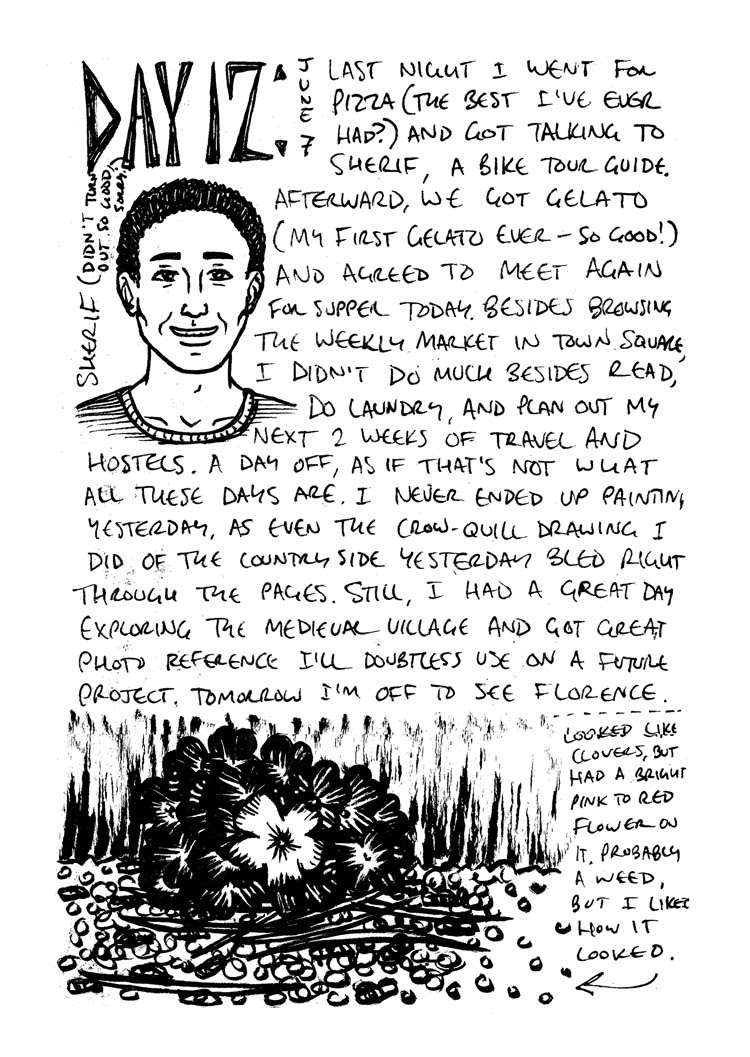 DAY 12:
JUNE 7
LAST NIGHT I WENT FOR
PIZZA (THE BEST I'VE EVER
HAD?) AND GOT TALKING TO
SHERIF, A BIKE TOUR GUIDE.
AFTERWARD, WE GOT GELATO
(MY FIRST GELATO EVER – SO GOOD!)
AND AGREED TO MEET AGAIN
FOR SUPPER TODAY. BESIDES BROWSING
THE WEEKLY MARKET IN TOWN SQUARE,
I DIDN'T DO MUCH BESIDES READ,
DO LAUNDRY, AND PLAN OUT MY
NEXT 2 WEEKS OF TRAVEL AND
HOSTELS. A DAY OFF, AS IF THAT'S NOT WHAT
ALL THESE DAYS ARE. I NEVER ENDED UP PAINTING
YESTERDAY, AS EVEN THE CROW-QUILL DRAWING I
DID OF THE COUNTRYSIDE YESTERDAY BLED RIGHT
THROUGH THE PAGES. STILL, I HAD A GREAT DAY
EXPLORING THE MEDIEVAL VILLAGE AND GOT GREAT
PHOTO REFERENCE I'LL DOUBTLESS USE ON A FUTURE
PROJECT. TOMORROW I'M OFF TO SEE FLORENCE.
SHERIF (DIDN'T TURN
OUT SO GOOD,
SORRY!)
LOOKED LIKE
CLOVERS, BUT
HAD A BRIGHT
PINK TO RED
FLOWER ON
IT. PROBABLY
A WEED,
BUT I LIKE
HOW IT
LOOKED.